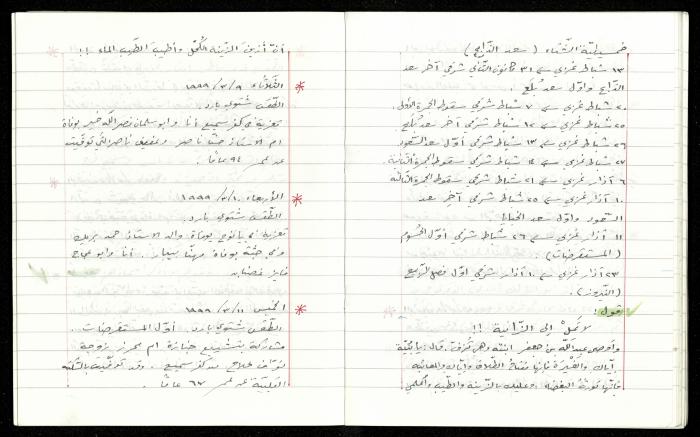 خمسينيّة الشتاء ( سعد الذابح )
١٣ شباط غربي = ٣١ كانون الثاني شرقي آخر سعد
الذابح واوّل سعد بُلَع .
٢٠ شباط غربي = ٧ شباط شرقي سقوط الجمرة الأولى.
٢٥ شباط غربي = ١٢ شباط شرقي آخر سعد بُلَع
٢٦ شباط غربي = ١٣ شباط شرقي أوّل سعد السعود
٢٧ شباط غربي = ١٤ شباط شرقي سقوط الجمرة الثانية.
٦ آذار غربي = ٢١ شباط شرقي سقوط الجمرة الثالثة
١٠ آذار غربي = ٢٥ شباط شرقي آخر سعد
السعود واوّل سعد الخبايا.
١١ آذار غربي = ٢٦ شباط شرقي أوّل الحسوم
( المستقرضات ) .
٢٣ آذار غربي = ١٠ آذار شرقي اوّل فصل الربيع
( النيروز ) .
قول :
لا تَمِلْ الى الزانية !!
واوصى عبد الله بن جعفر ابنته وهي تُزَفّ، قال : يا بُنيّة
إيّاك والغَيْرة فإنها مفتاح الطلاق وإيّاك والمعاتبة
فإنها تورث البغضة، وعليك بالزينة والطيب واعلمي
أنّ أزين الزينة الكُحل وأطيب الطيب الماء !!
الثلاثاء ٩/٣/١٩٩٩
الطقس شتوي بارد .
تعزية في كفر سميع أنا وابو سلمان نصرالله خير بوفاة
ام الاستاذ حنّا ناصر وعفيف ناصر التي توفّيت
عن عمر ٩٤ عامًا .
الأربعاء ١٠/٣/١٩٩٩
الطقس شتوي بارد .
تعزية في يانوح بوفاة والد الاستاذ حمد بريك
وفي جثّة بوفاة مهنّا بيبار . أنا وابو عجاج
فايز غضبان
الخميس ١١/٣/١٩٩٩
الطقس شتوي بارد . أوّل المستقرضات .
مشاركة بتشييع جنازة ام محرز زوجة
نوّاف فلاح من كفر سميع . وقد توفّيت بالسكتة
القلبية عن عمر ٦٧ عامًا .